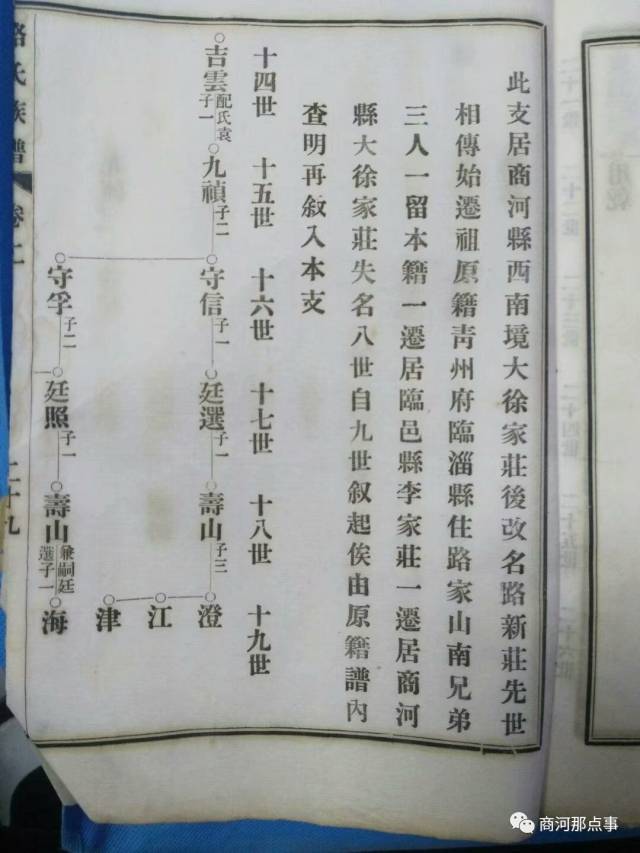 此支居商河縣西南境大徐家莊後改名路新莊先世
相傳始遷祖原籍青州府臨淄縣住路家山南兄弟
三人一留本籍一遷居臨邑縣李家莊一遷居商河
縣大徐家莊失名八世自九世叙起俟由原籍譜內
查明再敘入本支
十四世 十五世 十六世 十七世 十八世 十九世
吉雲 配氏袁 子一 九禎 子二 守信 子一 廷選 子一 壽山 子三 澄
江
津
守孚 子二 廷照 子一 壽山 兼嗣廷選 子一 海
路氏族譜 卷二 二十九
商河那点事